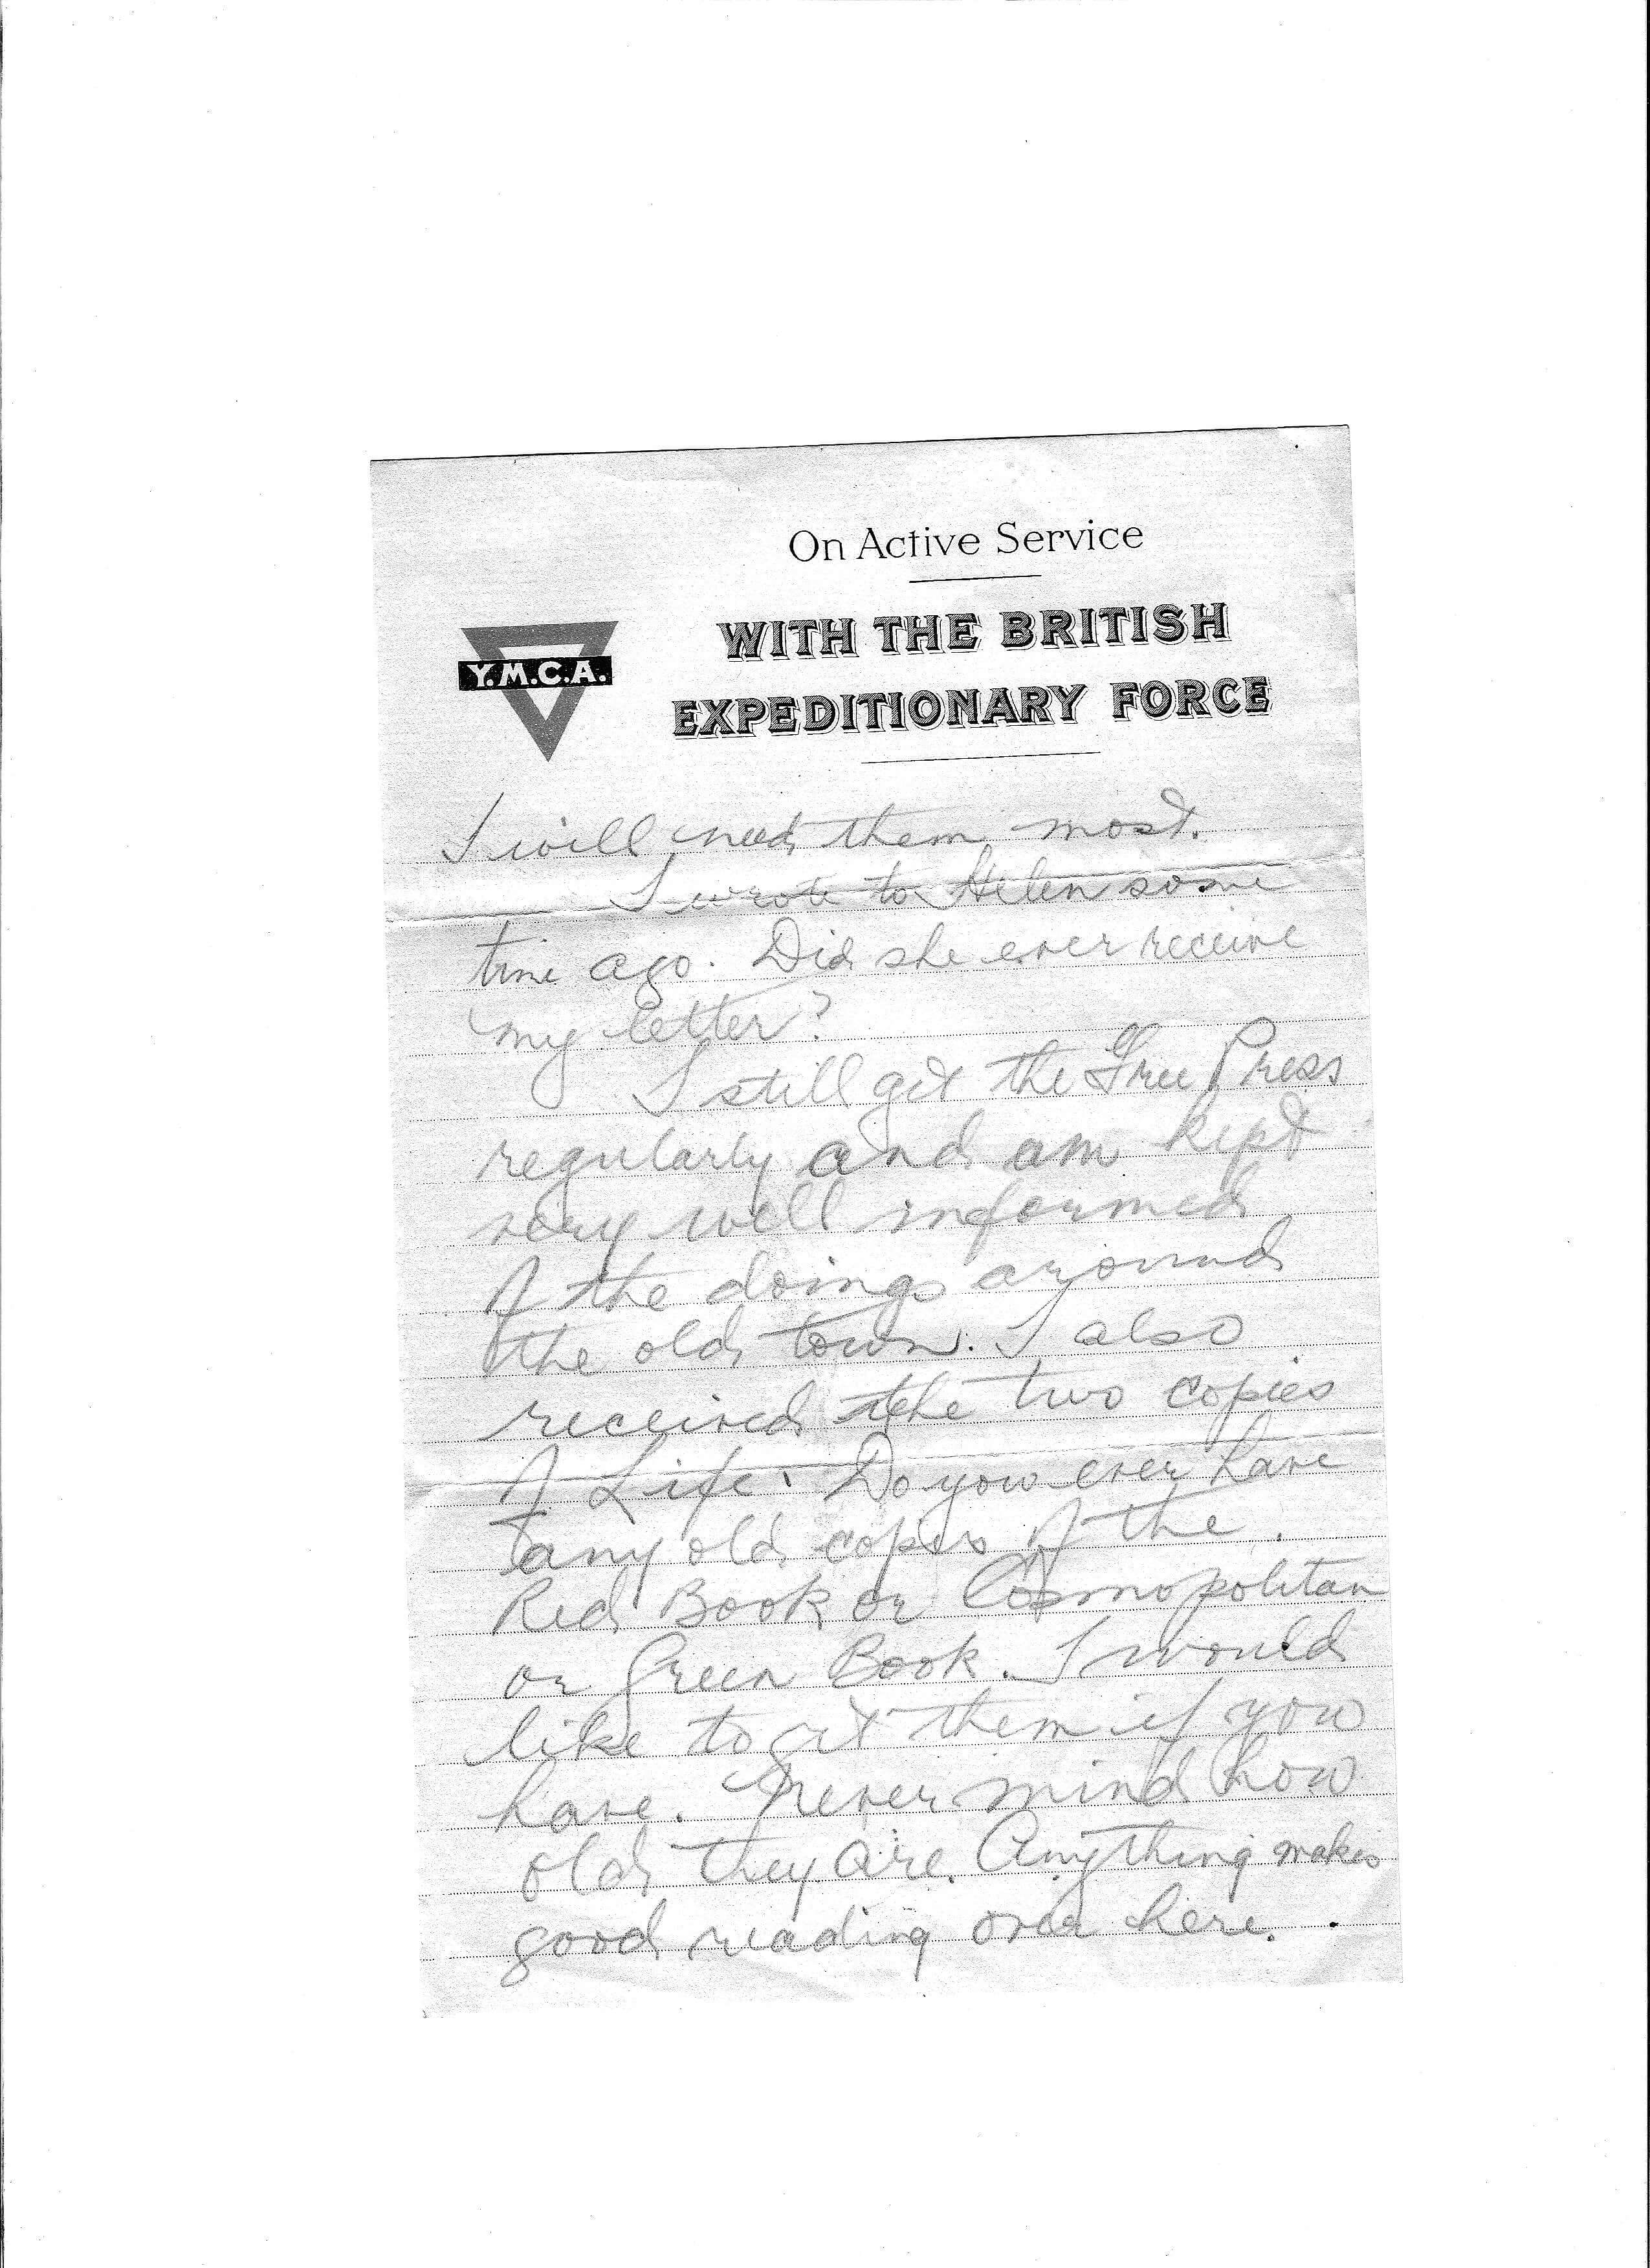 On Active Service
WITH THE BRITISH
EXPEDITIONARY FORCE
Y.M.C.A.
I will need them most.
I wrote to Helen some
time ago. Did she ever receive
my letter?
I still get the Free Press
regularly and am kept
very well informed
of the doings around
the old town. I also
received the two copies
of Life. Do you ever have
any old copies of the
Red Book or Cosmopolitan
or Green Book. I would
like to get them if you
have. Never mind how
old they are. Anything makes
good reading over here.